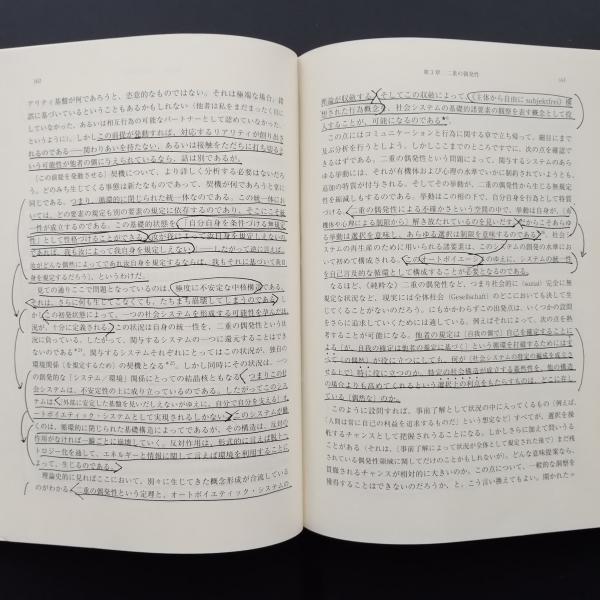 160
アリティ基盤が何であろうと、恣意的なものではない。それは極端な場合、錯
誤に基づいているということもあるかもしれない（他者は私をまだまったく目に
していなかった、あるいは相互行為の可能なパートナーとして認めていなかった、
というように）。しかしこの前提が発動すれば、対応するリアリティが創り出さ
れるのである——関わりあいを待たない、あるいは接触をただちに打ち切ると
いう可能性が他者の側に与えられているなら、話は別であるが。
〈この前提を発動させる〉契機について、より詳しく分析する必要はないだろ
う。どのみち生じてくる事態は新たなものであって、契機が何であろうと常に
同じである。つまり、循環的に閉じられた統一体なのである。この統一体にお
いては、どの要素の規定も別の要素の規定に依存するのであり、そこにこそ統
一性が成立するのである。この基礎的状態を、「自分自身を条件づける無規定
性」として性格づけることができる。汝が我によって自身を規定しないので
あれば、我も汝によって我自身を規定しない——したがって逆に言えば、
汝がどんな偶然によってであれ汝自身を規定するならば、我もそれに基づいて我自
身を規定するだろう〉、というわけだ。
見ての通りここで問題となっているのは、極度に不安定な中核構造である。
それは、さらに何も生じてこなくても、たちまち崩壊してしまうのである。しか
しこの初発状態によって、一つの社会システムを形成する可能性を孕んだ状
況が、十分に定義される。この状況は自身の統一性を、二重の偶発性という状
況に負っている。したがって、関与するシステムの一つに還元することはでき
ないのである*23。関与するシステムそれぞれにとってはこの状況が、独自の
環境関係（を規定するため）の契機となる*24。しかし同時にその状況は、一つ
の創発的な「システム／環境」関係にとっての結晶核ともなる。つまりこの社
会システムは、不安定性の上に成り立っているのである。したがってこのシス
テムは、〈外部に安定した基盤を見いだしえないがゆえに、自分で自分を支える〉オ
ートポイエティック・システムとして実現されるしかない。このシステムが働
くのは、循環的に閉じられた基礎構造によってであるが、その構造は、反対の
作用がなければ一瞬ごとに崩壊していく。反対作用は、形式的に言えば脱トー
トロジー化を通して、エネルギーと情報に関して言えば環境を利用することに
よって、生じるのである。
理論史的に見ればここにおいて、別々に生じてきた概念形成が合流している
のがわかる。二重の偶発性という定理と、オートポイエティック・システムの
第3章　二重の偶発性
161
理論が収斂する。そしてこの収斂によって、〈主体から自由に subjektfrei〉構
想された行為概念を、社会システムの基礎的諸要素の観察を表す概念として投
入することが、可能になるのである*25。
この点にはコミュニケーションと行為に関する章で立ち帰って、細目にまで
及ぶ分析を行うとしよう。しかしここまでのところですでに、次の点を確認で
きるはずである。二重の偶発性という問題によって、関与するシステムのあら
ゆる挙動には、それが有機体および心理の水準でいかに制約されていようとも、
追加の特質が付与される。そしてその挙動が、二重の偶発性から生じる無規定
性を縮減しもするのである。挙動はこの相の下で、自分自身を行為として特質
づける。二重の偶発性による不確かさという空間の中で、挙動は自身が、（有
機体や心理による制限から）解き放たれているのを見いだす。だからこそあらゆ
る挙動は選択を意味し、あらゆる選択は制限を意味するのである*26。社会シ
ステムの再生産のために用いられる諸要素は、このシステムの創発の水準にお
いて初めて構成される。このオートポイエーシスのゆえに、システムの統一性
を自己言及的な循環として構成することが必要となるのである。
なるほど、〈純粋な〉二重の偶発性など、つまり社会的に（sozial）完全に無
規定な状況など、現実には全体社会（Gesellschaft）のどこにおいても決して生
じてくることがないのだろう。にもかかわらずこの出発点は、いくつかの設問
をさらに追求していくためには適している。例えばそれによって、次の点を熟
考することが可能になる。他者の規定は（我の側で）自己を確定することによ
る（が、自我の確定は他者の確定に基づく）という循環を打破するためにはす
べて〈の偶然〉が役に立つにしても、何が（社会システムの特定の編成を成立さ
せる上で）特に役に立つのか。特定の社会構造が成立する蓋然性を、他の構造
の場合よりも高めてくれるという選択上の利点をもたらすものは、どこに存し
ている〈偶然な〉のか。
このように設問すれば、事前了解として状況の中に入ってくるもの（例えば、
「人間は常に自己の利益を追求するものだ」という想定など）すべてが、選択を操
縦するチャンスとして把握されることになる。しかしさらに加えて問いうる
ことがある（それは、〈事前了解によって状況が全体として規定された後で〉まだ残
されている偶発性領域に関してだけのことかもしれないが）。どんな意味提案なら、
貫徹されるチャンスが相対的に大きいのか。この点について、一般的な調整を
獲得することはできないのだろうか、と。こう言い換えてもよい。開かれた